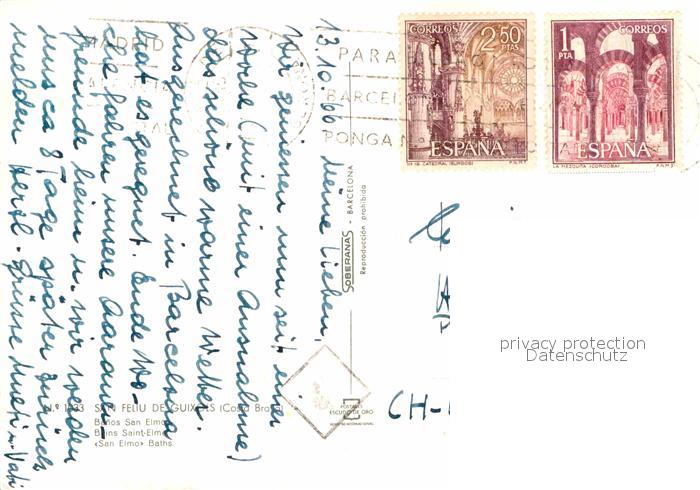 13.10.66 Meine Lieben,
Wir geniessen nun seit einer
Woche (mit einer Ausnahme)
das schöne warme Wetter.
Ausgerechnet in Barcelona
hat es geregnet. Ende Wo-
che fahren unsere Aarauer-
freunde heim u. wir werden
uns ca 8 Tage später zurück
melden. Herzl. Grüsse Mueti u. Vati
MADRID
PARA
BARCEL
PONGA
CORREOS
2,50
PTAS
ESPAÑA
CATEDRAL (BURGOS)
F.N.M.T.
1
PTA
CORREOS
ESPAÑA
LA MEZQUITA (CORDOBA)
F.N.M.T.
SOBERANAS - BARCELONA
Reproducción prohibida
CH-
privacy protection
Datenschutz
POSTALES
ESCUDO DE ORO
N.º 1033 SAN FELIU DE GUIXOLS (Costa Brava)
Baños San Elmo
Bains Saint-Elme
«San Elmo» Baths